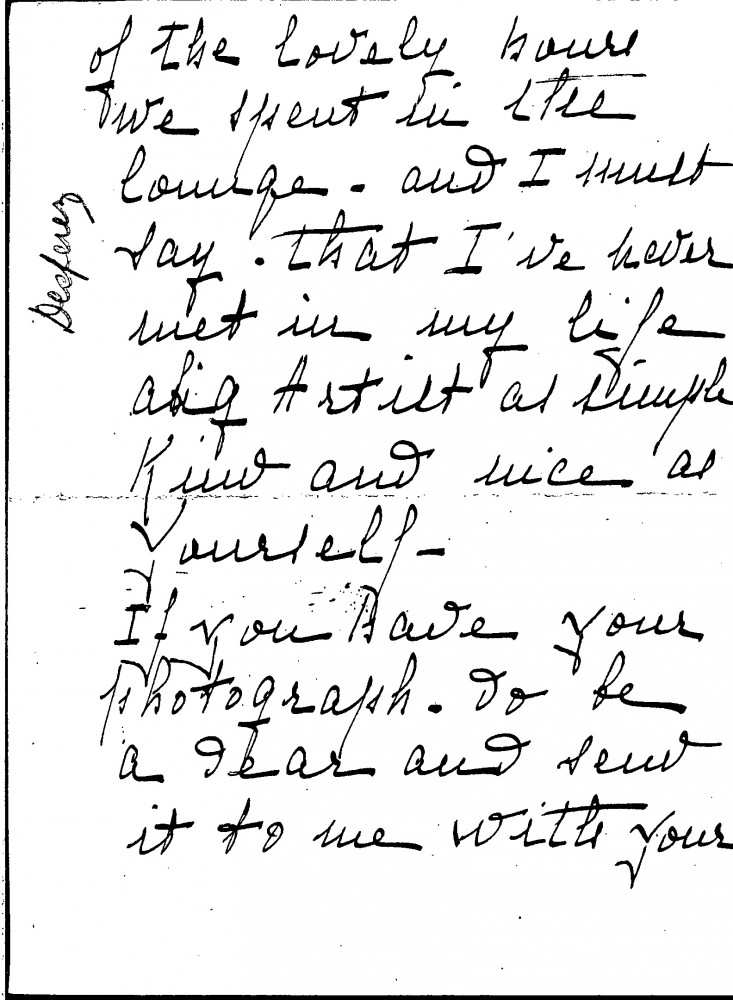 of the lovely hours
we spent in the
lounge. and I must
say. that I've never
met in my life
a big Artist as simple
Kind and nice as
yourself-
If you have your
photograph. do be
a dear and send
it to me with your